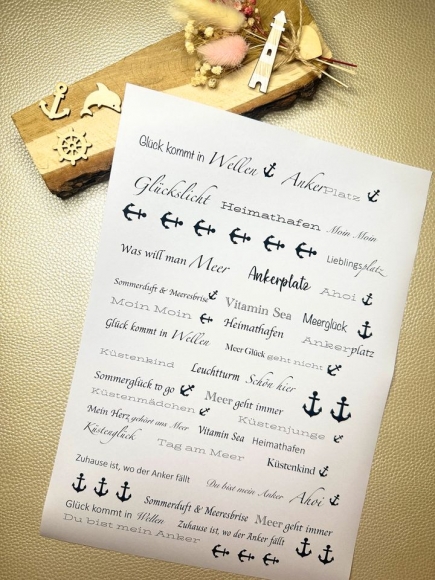 Glück kommt in Wellen AnkerPlatz
Glückslicht Heimathafen Moin Moin
Lieblingsplatz
Was will man Meer Ankerplatz Ahoi
Sommerduft & Meeresbrise Vitamin Sea Meerglück
Moin Moin Heimathafen Ankerplatz
Glück kommt in Wellen Meer Glück geht nicht
Küstenkind Leuchtturm Schön hier
Sommerglück to go Meer geht immer
Küstenmädchen Küstenjunge
Mein Herz gehört ans Meer Vitamin Sea Heimathafen
Küstenglück Tag am Meer Küstenkind
Zuhause ist, wo der Anker fällt Du bist mein Anker Ahoi
Sommerduft & Meeresbrise Meer geht immer
Glück kommt in Wellen Zuhause ist, wo der Anker fällt
Du bist mein Anker